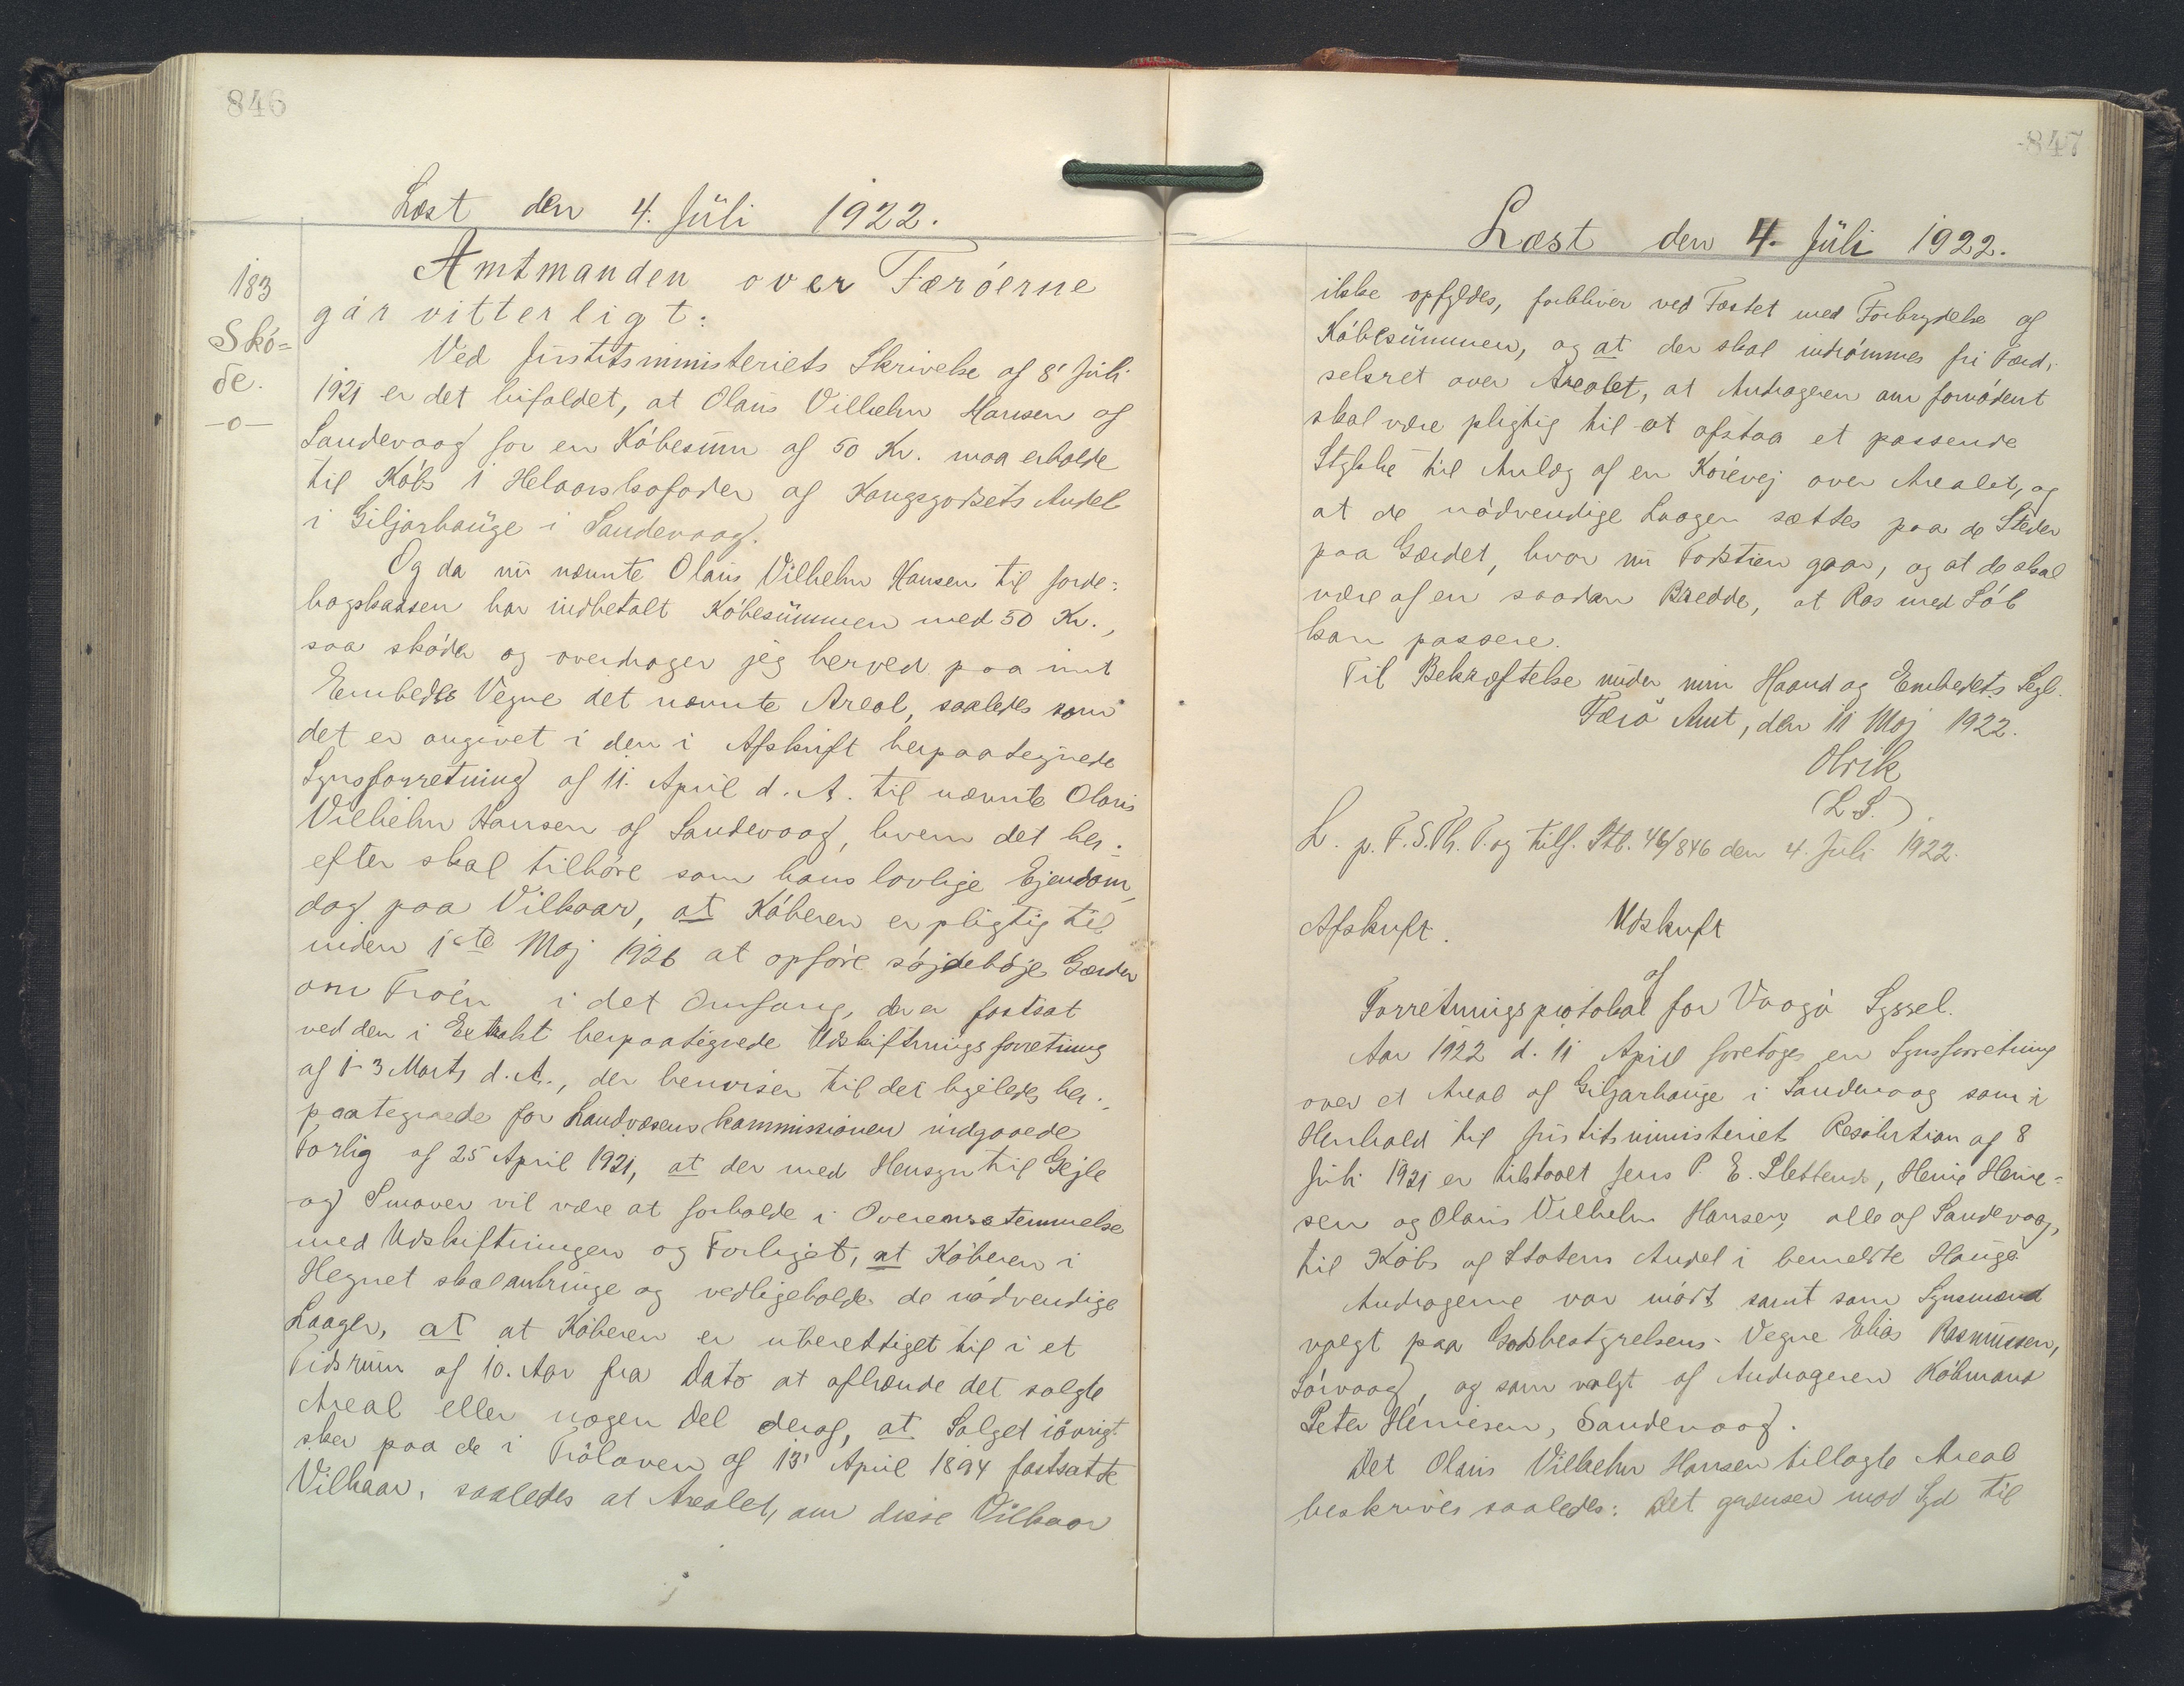 846
Læst den 4. Júli 1922.
183
Skö=
de.
-o-
Amtmanden over Færöerne
gör vitterligt:
Ved Justitsministeriets Skrivelse af 8' Juli
1921 er det bifaldet, at Olaus Vilhelm Hansen af
Sandevaag for en Köbesum af 50 Kr. maa erholde
til Köbs 1 Helaarskofoder af Kongsgodsets Andel
i Giljarhauge i Sandevaag.
Og da nu nævnte Olaus Vilhelm Hansen til Jorde=
bogskassen har indbetalt Köbesummen med 50 Kr.,
saa skøder og overdrager jeg herved paa mit
Embedes Vegne det nævnte Areal, saaledes som
det er angivet i den i Afskrift herpaategnede
Synsforretning af 11. April d. A. til nævnte Olaus
Vilhelm Hansen af Sandevaag, hvem det her=
efter skal tilhöre som hans lovlige Ejendom,
dog paa Vilkaar, at Köberen er pligtig til
inden 1ste Maj 1926 at opföre söjdehöje Gærder
om Tröen i det Omfang, der er fastsat
ved den i Extrakt herpaategnede Udskiftningsforretning
af 1-3 Marts d. A., der henviser til det ligeledes her=
paategnede for Landvæsenskommissionen indgaaede
Forlig af 25 April 1921, at der med Hensyn til Gejle
og Smaaer vil være at forholde i Overensstemmelse
med Udskiftningen og Forliget, at Köberen i
Hegnet skal anbringe og vedligeholde de nödvendige
Laager, at at Köberen er uberettiget til i et
Tidsrum af 10. Aar fra Dato at afhænde det solgte
Areal eller nogen Del deraf, at Salget iövrigt
sker paa de i Tröloven af 13' April 1894 fastsatte
Vilkaar, saaledes at Arealet, om disse Vilkaar
847
Læst den 4. Júli 1922.
ikke opfyldes, forbliver ved Fæstet med Forbrydelse af
Köbesummen, og at der skal indrömmes fri Færd-
selsret over Arealet, at Andrageren om fornödent
skal være pligtig til at afstaa et passende
Stykke til Anlæg af en Körevej over Arealet, og
at de nödvendige Laager sættes paa de Steder
paa Gærdet, hvor nu Fodstien gaar, og at de skal
være af en saadan Bredde, at Ros med Löb
kan passere.
Til Bekræftelse under min Haand og Embedets Segl.
Færö Amt, den 11 Maj 1922.
Olrik
(L.S.)
L. p. F. S. Th. P. og tilf. Ptb. 46/846 den 4. Juli 1922.
Afskrift. Udskrift
af
Forretningsprotokol for Vaagö Syssel.
Aar 1922 d. 11 April foretoges en Synsforretning
over et Areal af Giljarhauge i Sandevaag som i
Henhold til Justitsministeriets Resolution af 8
Juli 1921 er tilstaaet Jens P. E. Plettend, Henie Henie=
sen og Olaus Vilhelm Hansen, alle af Sandevaag,
til Köbs af Statens Andel i bemeldte Hauge.
Andragerne var mödt samt som Synsmænd
valgt paa Godsbestyrelsens Vegne Elias Rasmussen,
Sörvaag, og som valgt af Andrageren Köbmand
Peter Heniesen, Sandevaag.
Det Olaus Vilhelm Hansen tillagte Areal
beskrives saaledes: Det grænser mod Syd til